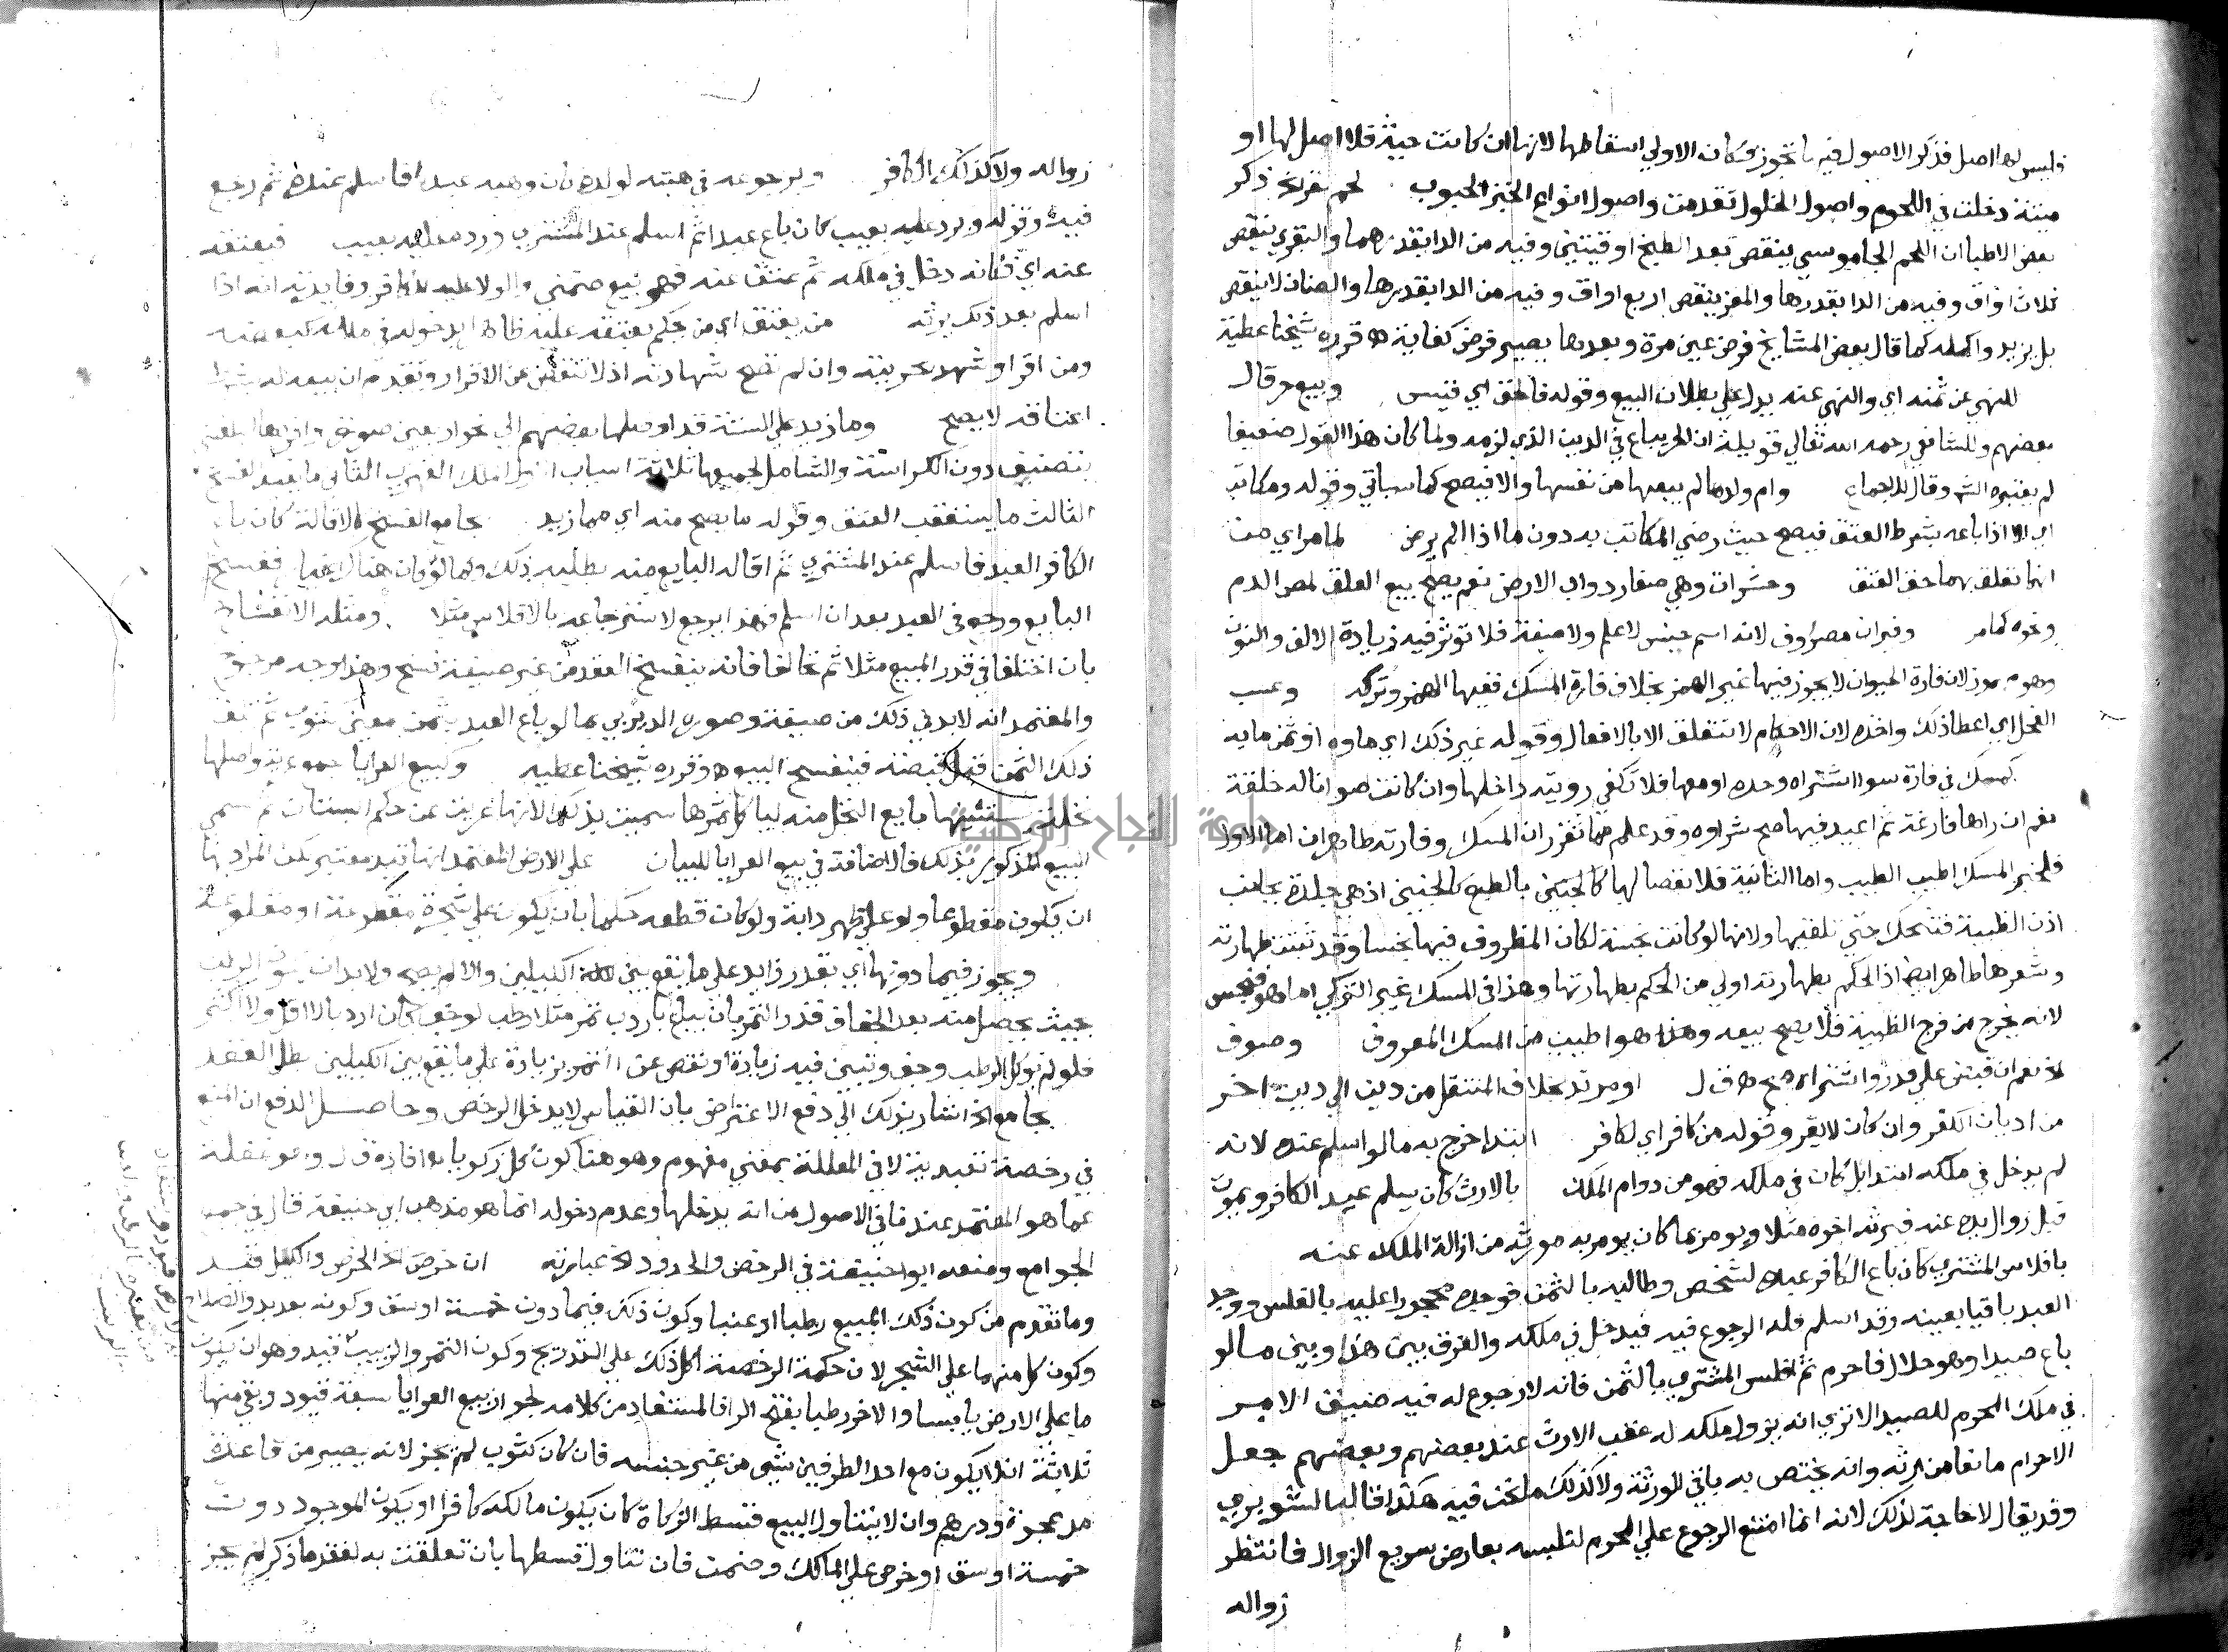 فليس لها اصل فذكر الاصول فيه تجوز وكان الاولي اسقاطها لانها ان كانت حية فلا اصل لها او
ميتة دخلت في اللحوم واصول الخلول تقدمت واصول انواع الخبز الحبوب لحم بقر الخ ذكر
بعض الاطبا ان اللحم الجاموسي ينقص بعد الطبخ اوقيتين وفيه من الدا بقدرهما والبقري ينقص
ثلاث اواق وفيه من الدا بقدرها والمعز ينقص اربع اواق وفيه من الدا بقدرها والضان لا ينقص
بل يزيد واكله كما قال بعض المشايخ فرض عين مرة وبعدها يصير فرض كفاية ه قرره شيخنا عطية
للنهي عن ثمنه اي والنهي عنه يدل علي بطلان البيع وقوله فالحق اي قيس وبيع حر قال
بعضهم وللشافعي رحمه الله تعالي قويلة ان الحر يباع في الدين الذي لزمه ولما كان هذا القول ضعيفا
لم يعتبره الش وقال للاجماع وام ولد ما لم يبعها من نفسها والا فيصح كما سياتي وقوله ومكاتب
اي الا اذا باعه بشرط العتق فيصح حيث رضي المكاتب به دون ما اذا لم يرض لما مر اي من
انها تعلق بهما حق العتق وحشرات وهي صغار دواب الارض نعم يصح بيع العلق لمص الدم
ونحوه كما مر وفيران مصروف لانه اسم جنس لا علم ولا صفة فلا تؤثر فيه زيادة الالف والنون
وهو مهموز لان فارة الحيوان لا يجوز فيها غير الهمز بخلاف فارة المسك ففيها الهمز وتركه وعسب
الفحل اي اعطا ذلك واخذه لان الاحكام لا تتعلق الا بالافعال وقوله غير ذلك اي ماوه او ثمن مايه
كمسك في فارة سوا اشتراه وحده او معها فلا تكفي رويته داخلها وان كانت صوانا له خلقة
نعم ان راها فارغة ثم اعيد فيها صح شراوه وقد علم مما تقرر ان المسك وفارته طاهران اما الاول
فلخبر المسك اطيب الطيب واما الثانية فلانفصالها كالجنين بالطبع كالجنين اذ هي جلدة بجانب
اذن الظبية فتحتك حتي تلقيها ولانها لو كانت نجسة لكان المظروف فيها نجسا وقد ثبتت طهارته
وشعرها طاهر ايض اذ الحكم بطهارته اولي من الحكم بطهارتها وهذا في المسك غير التركي اما هو فنجس
لانه يخرج من فرج الظبية فلا يصح بيعه وهذا هو اطيب من المسك المعروف وصوف
الخ نعم ان قبض علي قدر واشتراه صح ه ق ل او مرتد بخلاف المنتقل من دين الي دين اخر
من اديان الكفر وان كان لا يقر وقوله من كافر اي لكافر ابتدا خرج به ما لو اسلم عنده لانه
لم يدخل في ملكه ابتدا بل كان في ملكه فهو من دوام الملك بالارث كان يسلم عبد الكافر ويموت
قبل زوال يده عنه فيرثه اخوه مثلا ويومر بما كان يومر به مورثه من ازالة الملك عنه
بافلاس المشتري كان باع الكافر عبده لشخص وطالبه بالثمن فوجده محجورا عليه بالفلس ووجد
العبد باقيا بعينه وقد اسلم فله الرجوع فيه فيدخل في ملكه والفرق بين هذا وبين ما لو
باع صيدا وهو حلال فاحرم ثم افلس المشتري بالثمن فانه لا رجوع له فيه ضيق الامر
في ملك المحرم للصيد الا تري انه يزول ملكه له عقب الارث عند بعضهم وبعضهم جعل
الاحرام مانعا من ارثه وانه يختص به باقي الورثة ولا كذلك ما نحن فيه هكذا قاله الشوبري
وقد يقال لا حاجة لذلك لانه انما امتنع الرجوع علي المحرم لتلبسه بعارض سريع الزوال فانتظر
زواله
زواله ولا كذلك الكافر وبرجوعه في هبته لولده بان وهبه عبدا فاسلم عنده ثم رجع
فيه وقوله وبرد عليه بعيب كان باع عبدا ثم اسلم عند المشتري ورده عليه بعيب فيعتقه
عنه اي فكانه دخل في ملكه ثم عتق عنه فهو بيع ضمني والولا عليه للكافر وفايدته انه اذا
اسلم بعد ذلك يرثه من يعتق اي من يحكم بعتقه عليه ظاهرا بدخوله في ملكه كبعضه
ومن اقر او شهد بحريته وان لم تصح شهادته اذ لا تنقص عن الاقرار وتقدم ان بيعه له بشرط
اعتاقه لا يصح وما زيد علي الستة قد اوصلها بعضهم الي نحو اربعين صورة وافردها
بتصنيف دون الكراسة والشامل لجميعها ثلاثة اسباب الملك القهري الثاني ما يفيد الفسخ
الثالث ما يستعقب العتق وقوله ما يصح منه اي مما زيد بجامع الفسخ كالاقالة كان باع
الكافر العبد فاسلم عند المشتري ثم اقاله البايع منه بطلبه ذلك وكما لو كان هناك ففسخ
البايع ورجع في العبد بعد ان اسلم فهذا يرجع لاسترجاعه بالافلاس مثلا ومثله الانفساخ
بان اختلفا في قدر المبيع مثلا ثم تحالفا فانه ينفسخ العقد من غير صيغة فسخ وهذا وجه مرجوح
والمعتمد انه لابد في ذلك من صيغة وصوره الديربي بما لو باع العبد بثمن معين كثوب ثم تلف
ذلك الثمن قبل قبضه فينفسخ البيع ه وقرره شيخنا عطية وكبيع العرايا جمع عرية واصلها
نخلة يستثنيها بايع النخل منه لياكل ثمرها سميت بذلك لانها عريت عن حكم البستان ثم سمي
البيع المذكور بذلك فالاضافة في بيع العرايا للبيان علي الارض المعتمد انه قيد معتبر لكن المراد بها
ان يكون مقطوعا ولو علي ظهر دابة ولو كان قطعه حكما بان يكون علي شجرة مقطوعة او مقلوعة
ويجوز فيما دونها اي بقدر زايد علي ما يقع بين الكيلين والا لم يصح ولابد ان يكون الرطب
بحيث يحصل منه بعد الجفاف قدر التمر بان يباع باردب تمر مثلا رطب لو جف كان اردبا لا اقل ولا اكثر
فلو لم يوكل الرطب وجف وتبين فيه زيادة او نقص عن التمر بزيادة علي ما يقع بين الكيلين بطل العقد
بجامع الخ اشار بذلك الي دفع الاعتراض بان القياس لا يدخل الرخص وحاصل الدفع ان المنع
في رخصة تعبدية لا في المعللة بمعني مفهوم وهو هنا كون كل زكويا افاده ق ل وهو غفلة
عما هو المعتمد عندنا في الاصول من انه يدخلها وعدم دخوله انما هو مذهب ابي حنيفة قال في جمع
الجوامع ومنعه ابو حنيفة في الرخص والحدود الخ عبارته ان خرص الخ الخرص والكيل قيد
وما تقدم من كون ذلك المبيع رطبا او عنبا وكون ذلك فيما دون خمسة اوسق وكونه بعد بدو الصلاح
وكون كل منهما علي الشجر لان حكمة الرخصة اكل ذلك علي التدريج وكون التمر والزبيب قيد وهو ان يكون
ما علي الارض يابسا والاخر رطبا بفتح الرا فالمستفاد من كلامه لجواز بيع العرايا سبعة قيود وبقي منها
ثلاثة ان لا يكون مع احد الطرفين شي من غير جنسه فان كان كثوب لم يجز لانه يصير من قاعدة
مد عجوة ودرهم وان لا يتناول البيع قسط الزكاة كان يكون مالكه كافرا او يكون الموجود دون
خمسة اوسق او خرص علي المالك وضمن فان تناول قسطها بان تعلقت به لفقد ما ذكر لم يجز